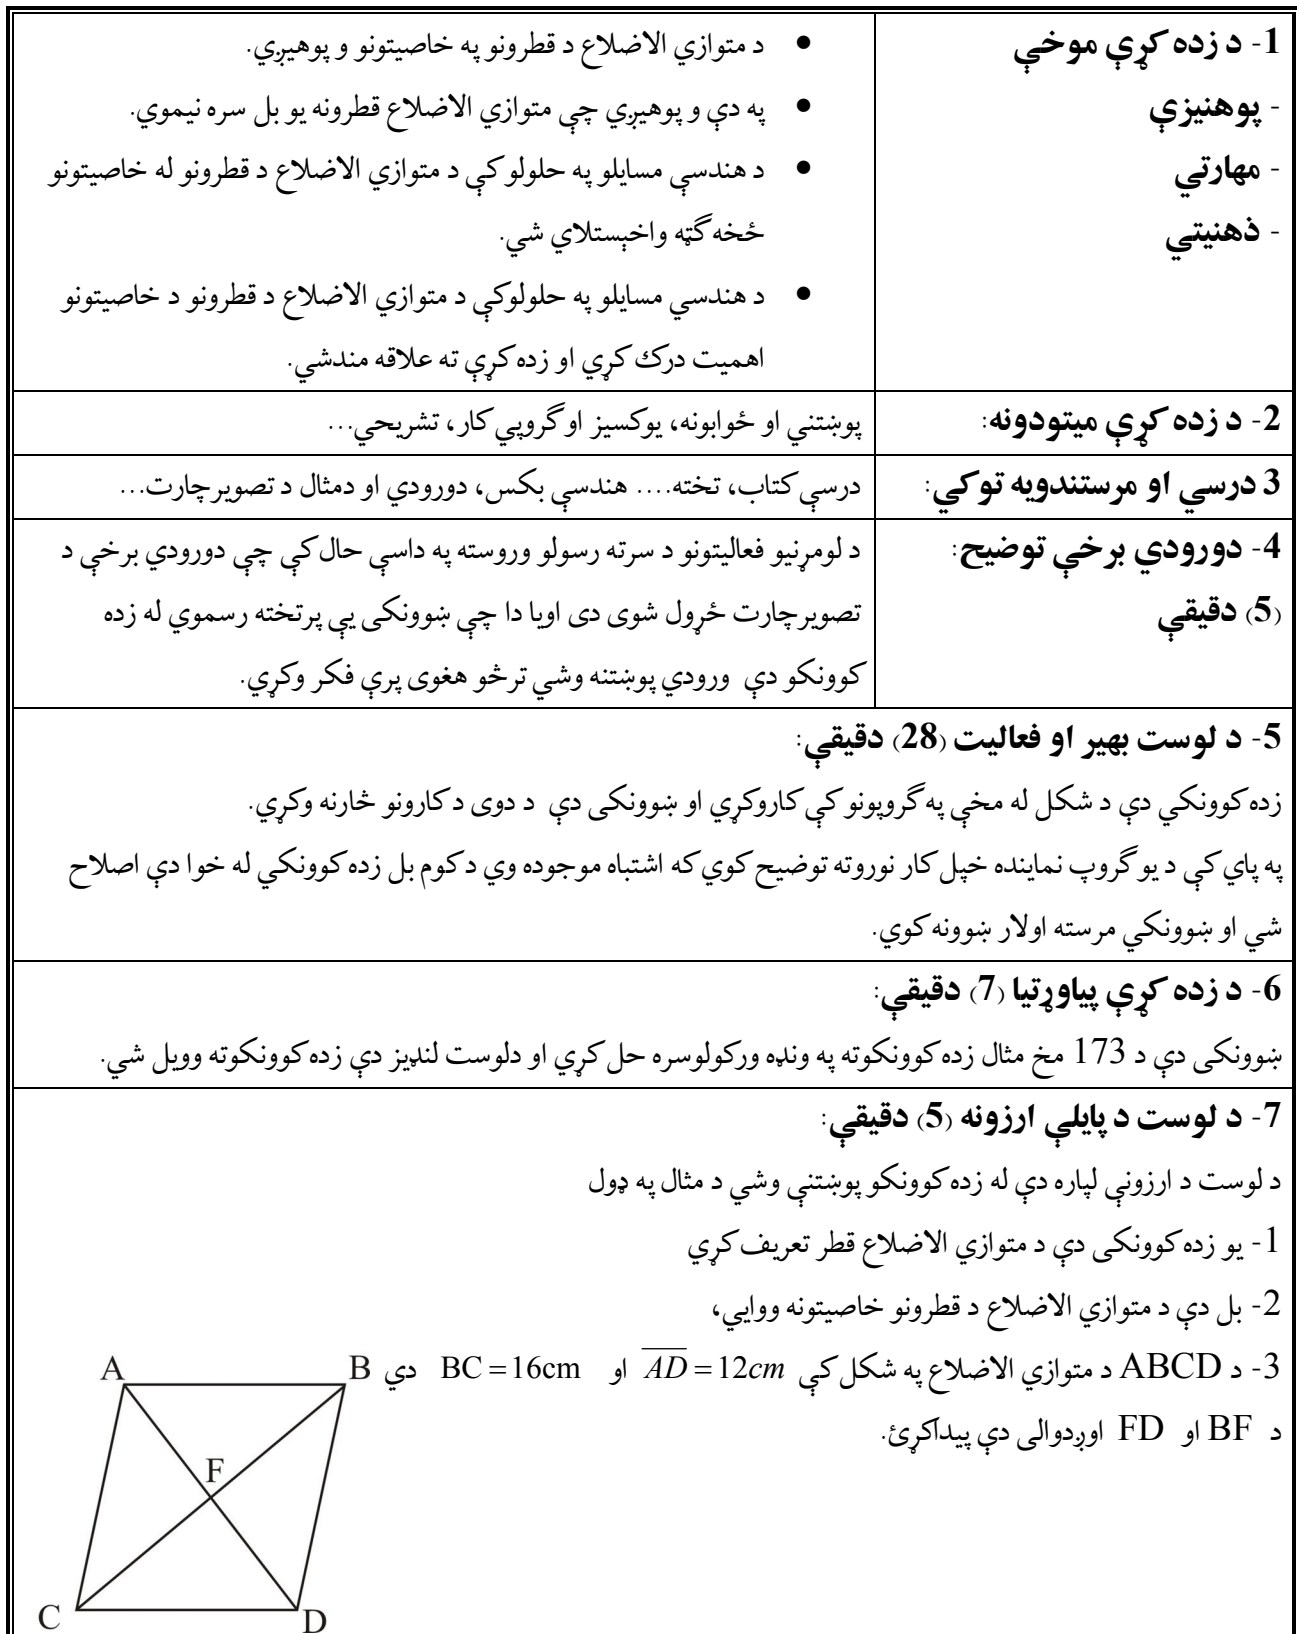 1- د زده کړې موخې
- پوهنیزې
- مهارتي
- ذهنیتي
● د متوازي الاضلاع د قطرونو په خاصیتونو و پوهیږي.
● په دې و پوهیږي چې متوازي الاضلاع قطرونه یو بل سره نیموي.
● د هندسې مسایلو په حلولو کې د متوازي الاضلاع د قطرونو له خاصیتونو
څخه گټه واخېستلای شي.
● د هندسي مسایلو په حلولوکې د متوازي الاضلاع د قطرونو د خاصیتونو
اهمیت درك کړي او زده کړې ته علاقه مندشي.
2- د زده کړې میتودونه:
پوښتنې او ځوابونه، یوکسیز او گروپي کار، تشریحي...
3 درسي او مرستندویه توکي:
درسې کتاب، تخته.... هندسې بکس، دورودي او دمثال د تصویر چارت...
4- دورودي برخې توضیح:
(5) دقیقې
د لومړنیو فعالیتونو د سرته رسولو وروسته په داسې حال کې چې دورودي برخې د
تصویر چارت ځړول شوی دی اویا دا چې ښوونکی یې پرتخته رسموي له زده
کوونکو دې ورودي پوښتنه وشي ترڅو هغوی پرې فکر وکړي.
5- د لوست بهیر او فعالیت (28) دقیقې:
زده کوونکي دې د شکل له مخې په گروپونو کې کاروکړي او ښوونکی دې د دوی د کارونو څارنه وکړي.
په پای کې د یو گروپ نماینده خپل کار نوروته توضیح کوي که اشتباه موجوده وي د کوم بل زده کوونکي له خوا دې اصلاح
شي او ښوونکي مرسته اولار ښوونه کوي.
6- د زده کړې پیاوړتیا (7) دقیقې:
ښوونکی دې د 173 مخ مثال زده کوونکوته په ونډه ورکولوسره حل کړي او دلوست لنډیز دې زده کوونکوته وویل شي.
7- د لوست د پایلې ارزونه (5) دقیقې:
د لوست د ارزونې لپاره دې له زده کوونکو پوښتنې وشي د مثال په ډول
1- یو زده کوونکی دې د متوازي الاضلاع قطر تعریف کړي
2- بل دې د متوازي الاضلاع د قطرونو خاصیتونه ووایي،
3- د ABCD د متوازي الاضلاع په شکل کې $\overline{AD}=12cm$ او BC=16cm دي
د BF او FD اوږدوالی دې پیداکړئ.
A B
F
C D